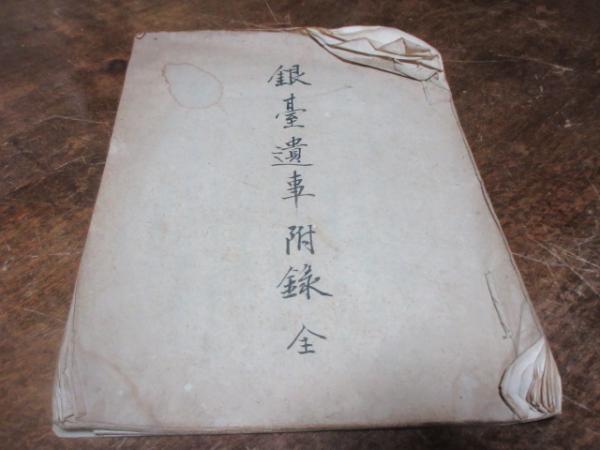 銀臺遺事附録全